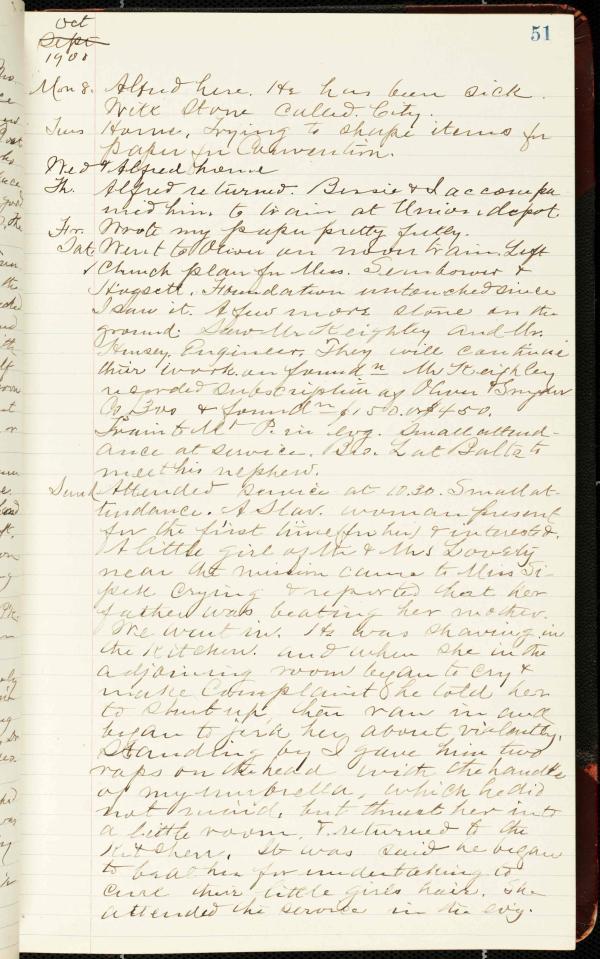 Oct
Sept
51
1900
Mon 8. Alfred here. He has been sick.
Will Stone called. City.
Tues Home, trying to shape items for
paper for Convention.
Wed & Alfred home
Th. Alfred returned. Bessie & I accompa-
nied him to train at Union depot.
Fr. Wrote my paper pretty fully.
Sat. Went to Oliver on noon train. Left
& Church plan for Miss. Isenhower &
Hogsett. Foundation untouched since
I saw it. A few more stone on the
ground. Saw Mr. Keighley and Mr.
Kinsey, Engineer. They will continue
their work on found n. Mr Keighley
recorded subscription as Oliver & Snyder
Co 300 & found n $150. or $450.
Train to Mt P. in evg. Small attend-
ance at service. Bro. L at Balto to
meet his nephew.
Sund Attended service at 10.30. Small at-
tendance. A Slav. woman present
for the first time (for her) & interested.
A little girl of Mr & Mrs Lovely
near the mission came to Miss Si-
pek crying & reported that her
father was beating her mother.
We went in. He was shaving in
the kitchen. and when she in the
adjoining room began to cry &
make complaint he told her
to shut up, then ran in and
began to jerk her about violently.
Standing by I gave him two
raps on the head with the handle
of my umbrella, which he did
not mind, but thrust her into
a little room, & returned to the
kitchen. It was said he began
to beat her for undertaking to
curl their little girls hair. She
attended the service in the evg.